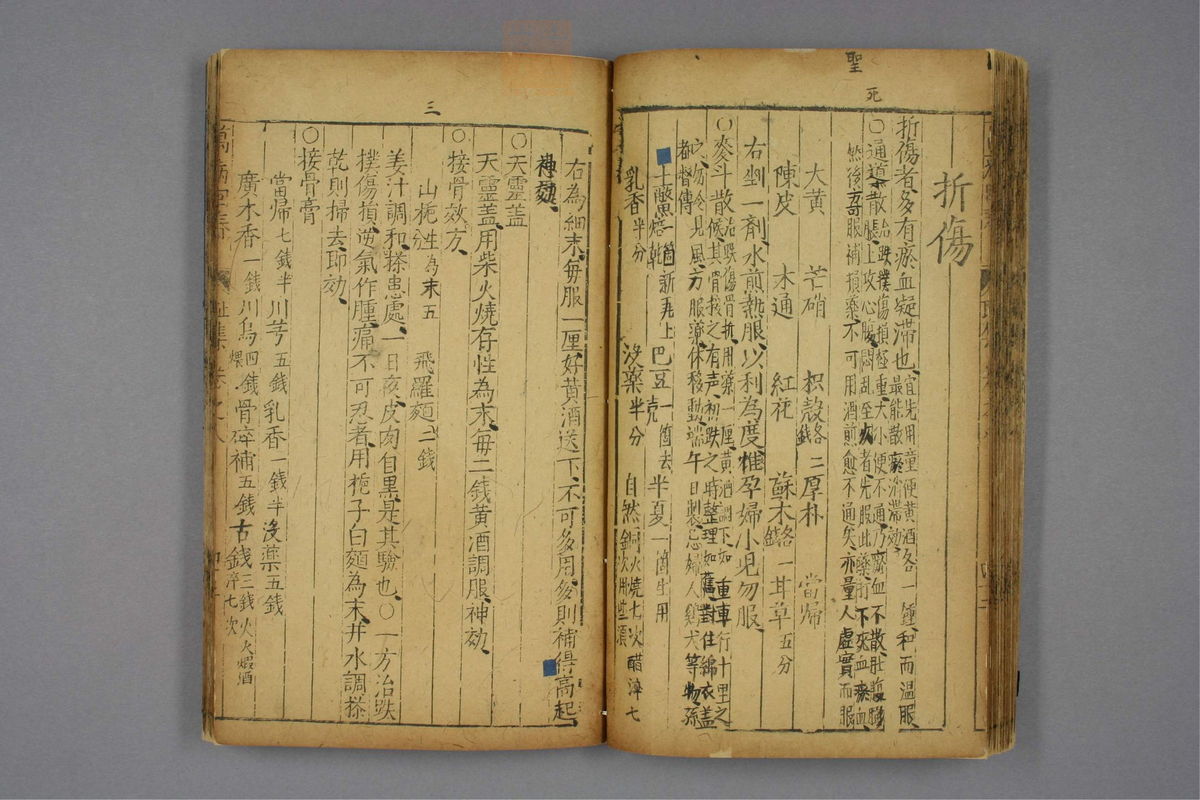 聖
死
折傷
折傷者多有瘀血凝滯也宜先用童便黃酒各一鍾和而溫服
最能散瘀消滯効
○通導散治跌撲傷損極重大小便不通乃瘀血不散肚腹膨
脹上攻心腹悶亂至死者先服此藥打下死血瘀血
然後可服補損藥不可用酒煎愈不通矣亦量人虛實而服
大黃 芒硝 枳殼各二錢 厚朴 當歸
陳皮 木通 紅花 蘇木各一錢 甘草五分
右剉一劑水煎熱服以利為度惟孕婦小兒勿服
○麥斗散治跌傷骨折用藥一厘黃酒調下如重車行十里之
候其骨接之有聲初跌之時整理如舊對住綿衣蓋
之勿令見風方服藥休移動端午日製忌婦人雞犬等物孫
都督傳
土鱉一箇新瓦上焙乾 巴豆一箇去壳 半夏一箇生用
乳香半分 沒藥半分 自然銅火燒七次醋淬七次用些須
三
右為細末每服一厘好黃酒送下不可多用多則補得高起
神効
○天靈蓋
天靈蓋用柴火燒存性為末每二錢黃酒調服神効
○接骨效方
山梔生為末五分 飛羅麵二錢
姜汁調和搽患處一日夜皮肉自黑是其驗也○一方治跌
撲傷損逆氣作腫痛不可忍者用梔子白麵為末井水調搽
乾則掃去即効
○接骨膏
當歸七錢半 川芎五錢 乳香一錢半 沒藥五錢
廣木香一錢 川烏四錢煨 骨碎補五錢 古錢三錢火煅酒淬七次